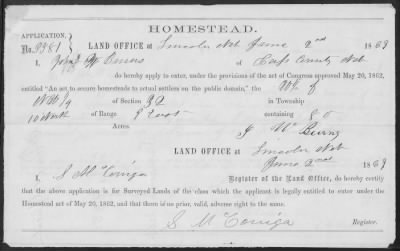 HOMESTEAD.
APPLICATION.
No. 9981
LAND OFFICE at Lincoln Neb June 2nd 1869
I, John W Burns of Cass County Neb
do hereby apply to enter, under the provisions of the act of Congress approved May 20, 1862,
entitled "An act to secure homesteads to actual settlers on the public domain," the W½ of
NW¼ of Section 32 in Township
10 North of Range 9 East containing 80
Acres
J W Burns
LAND OFFICE at Lincoln Neb
June 2nd 1869
I, S M Register of the Land Office, do hereby certify
that the above application is for Surveyed Lands of the class which the applicant is legally entitled to enter under the
Homestead act of May 20, 1862, and that there is no prior, valid, adverse right to the same.
S M
Register.